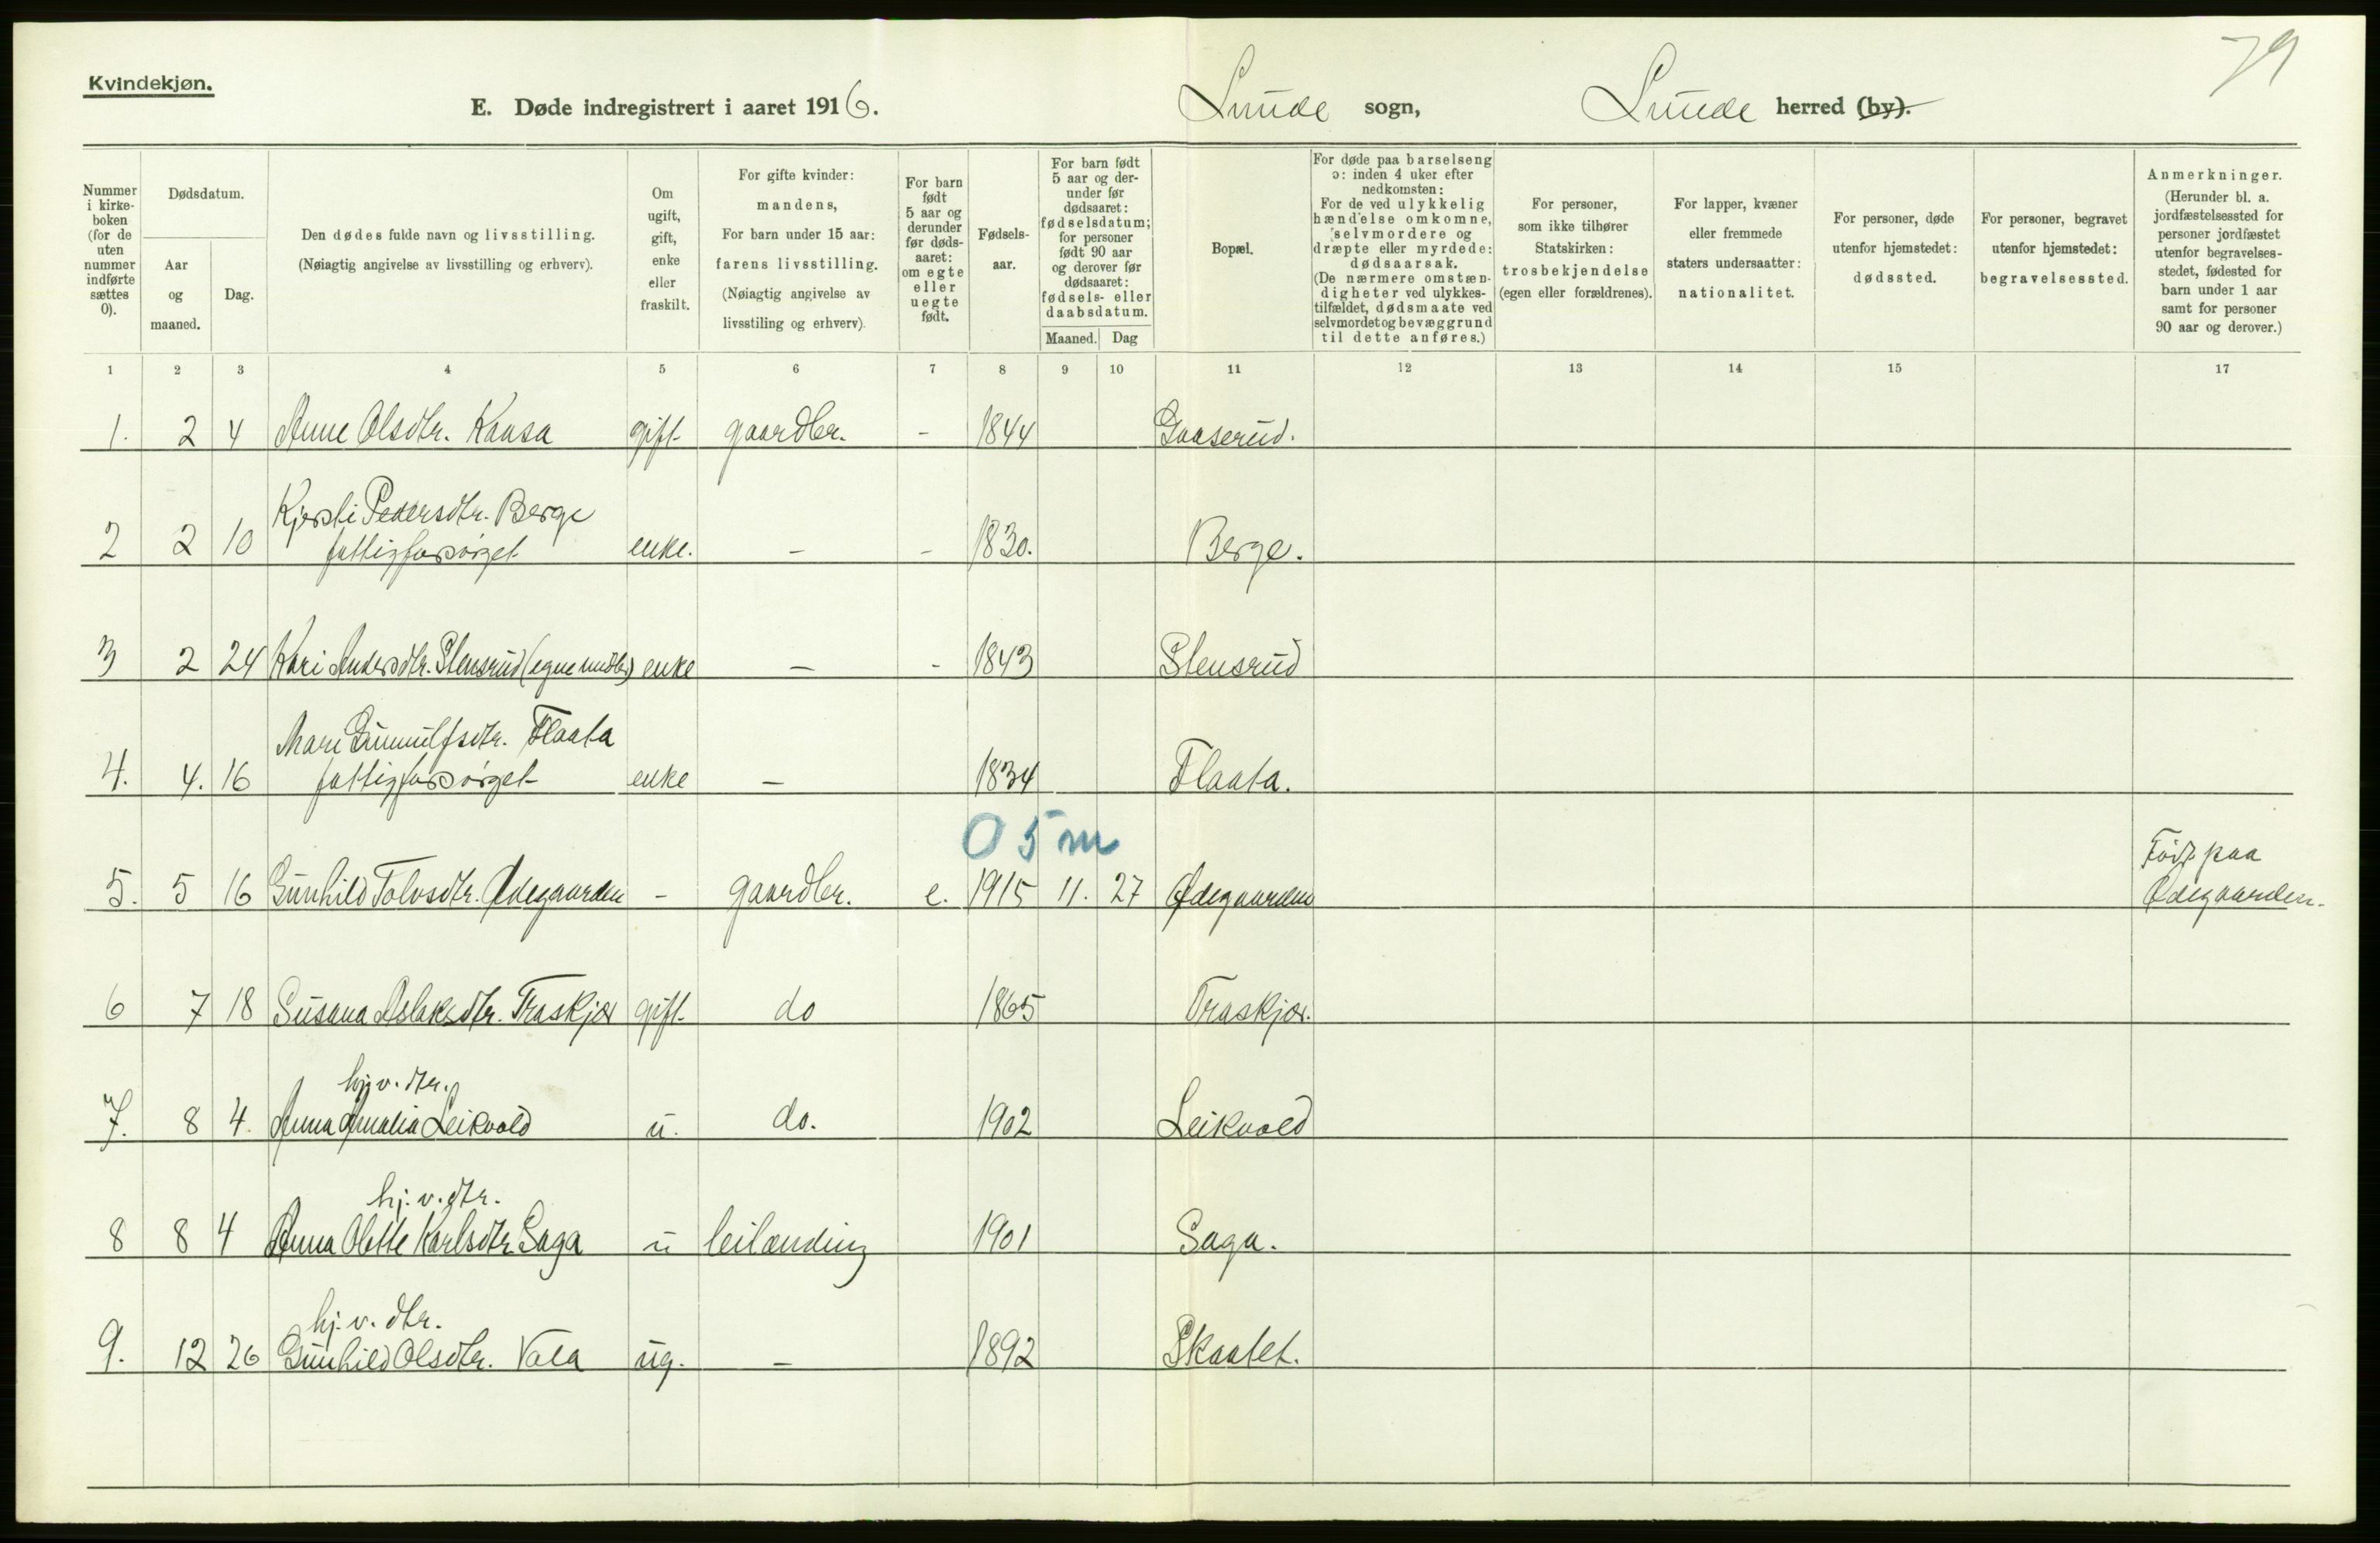 79
Kvindekjøn.
E. Døde indregistrert i aaret 1916. Lunde sogn, Lunde herred (by).
Nummer i kirke-boken (for de uten nummer indførte sættes 0).
Dødsdatum.
Aar og maaned.
Dag.
Den dødes fulde navn og livsstilling.
(Nøiagtig angivelse av livsstilling og erhverv).
Om ugift, gift, enke eller fraskilt.
For gifte kvinder: mandens,
For barn under 15 aar: farens livsstilling.
(Nøiagtig angivelse av livsstiling og erhverv).
For barn født 5 aar og derunder før døds-aaret: om egte eller uegte født.
Fødsels-aar.
For barn født 5 aar og der-under før dødsaaret: fødselsdatum; for personer født 90 aar og derover før dødsaaret: fødsels- eller daabsdatum.
Maaned. Dag
Bopæl.
For døde paa barselseng ɔ: inden 4 uker efter nedkomsten:
For de ved ulykkelig hændelse omkomne, selvmordere og dræpte eller myrdede: dødsaarsak.
(De nærmere omstæn-digheter ved ulykkes-tilfældet, dødsmaate ved selvmordet og bevæggrund til dette anføres.)
For personer, som ikke tilhører Statskirken: trosbekjendelse (egen eller forældrenes).
For lapper, kvæner eller fremmede staters undersaatter: nationalitet.
For personer, døde utenfor hjemstedet: dødssted.
For personer, begravet utenfor hjemstedet: begravelsessted.
Anmerkninger.
(Herunder bl. a. jordfæstelsessted for personer jordfæstet utenfor begravelses-stedet, fødested for barn under 1 aar samt for personer 90 aar og derover.)
1 2 3 4 5 6 7 8 9 10 11 12 13 14 15 17
1. 2 4 Anne Olsdtr. Kaasa gift gaardbr. - 1844 Gaaserud.
Kjersti Pedersdtr. Berge
2 2 10 fattigforsørget enke. - - 1830. Berge.
3 2 24 Kari Andersdtr. Stensrud (egne midler) enke - - 1843 Stensrud
Mari Gunnulfsdtr. Flaata
4. 4. 16 fattigforsørget enke - 1834 Flaata.
0 5 m
Født paa
5. 5 16 Gunhild Tolvsdtr. Ødegaarden - gaardbr. e. 1915 11. 27 Ødegaarden Ødegaarden.
6 7 18 Susana Aslaksdtr. Traskjær gift do 1865 Traskjær.
hj. v. dtr.
7. 8 4. Anna Amalia Leikvold u. do. 1902 Leikvold
hj. v. dtr.
8 8 4 Anna Olette Karlsdtr. Saga u leilænding 1901 Saga.
hj. v. dtr.
9. 12 26 Gunhild Olsdtr. Vala ug. - 1892 Skaatet.